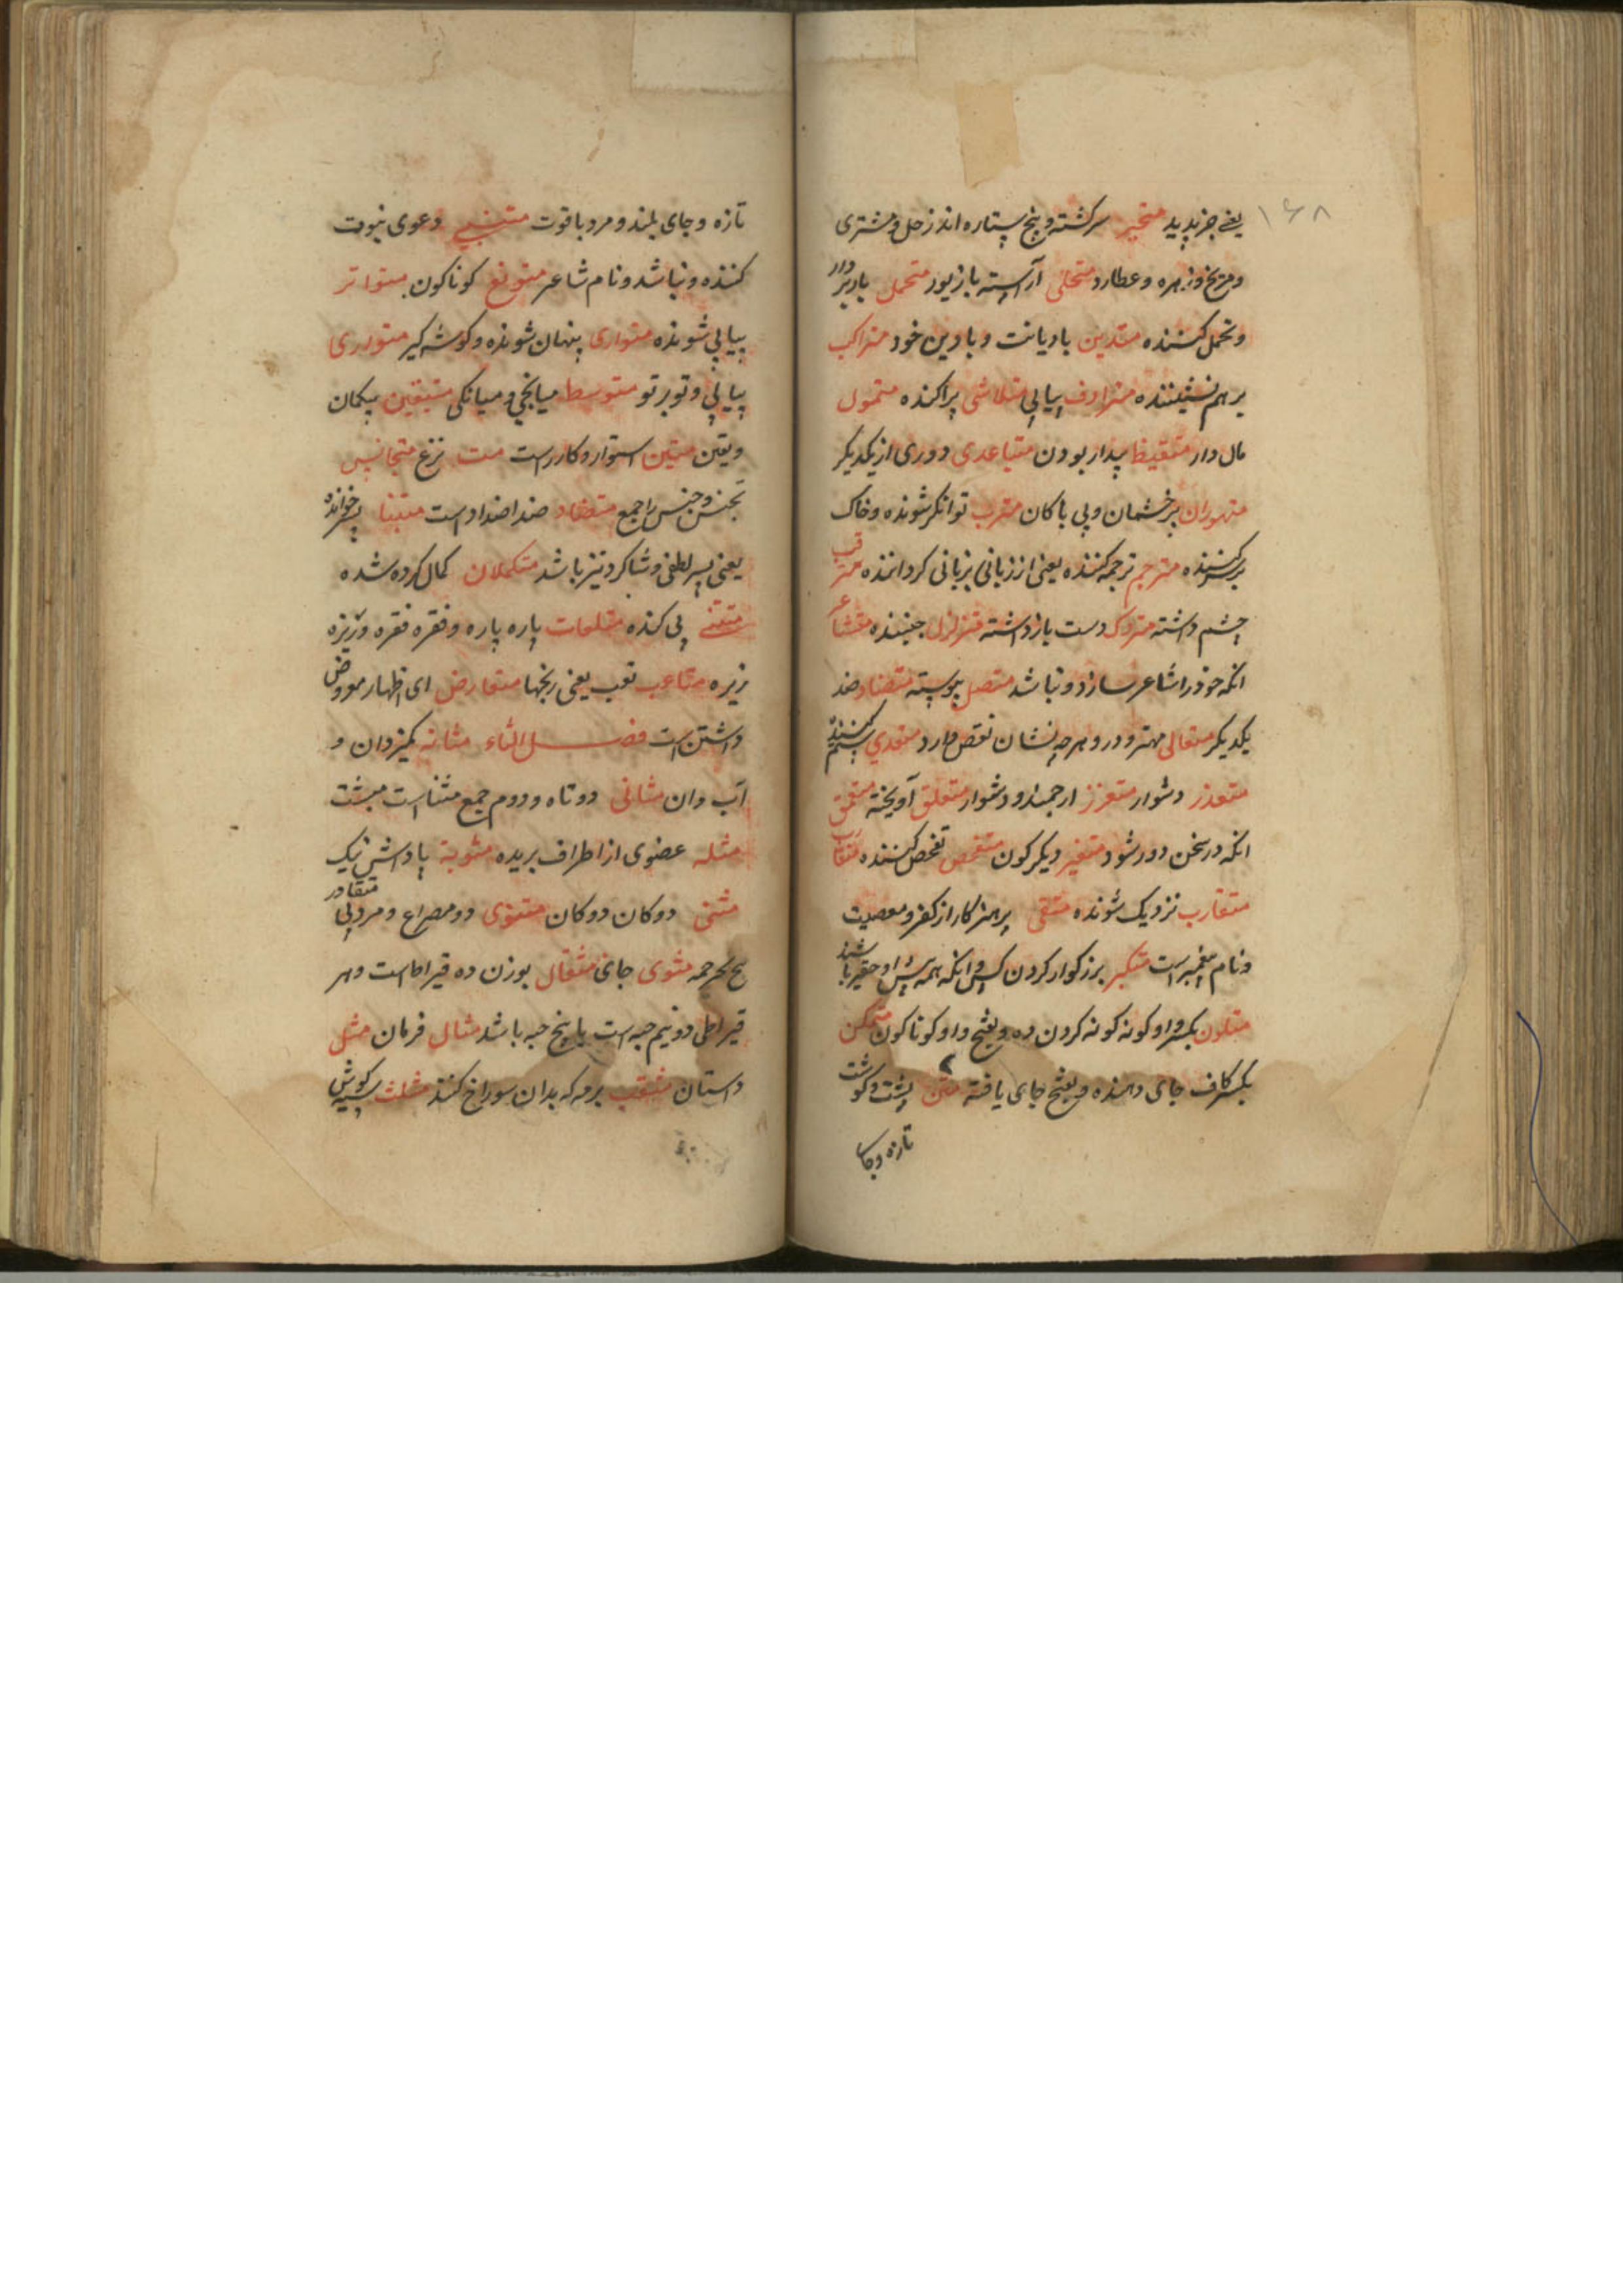 ۱۶۸
یعنی چیز پدید متحیر سرکشته و پنج ستاره اند زحل و مشتری
و مریخ و زهره و عطارد متحلی آراسته با زیور متحمل باربردار
و تحمل کننده متدین با دیانت و با دین خود متراکب
بر هم نشیننده مترادف پیاپی متلاشی پراکنده متمول
مال دار متقیظ بیدار بودن متباعدی دوری از یکدیکر
متهوران پرخشمان و بی باکان مترب توانکر شونده و خاک
بر کننده مترجم ترجمه کننده یعنی از زبانی بزبانی کرداننده مترقب
چشم داشته متروک دست بازداشته متزلزل جنبنده متشاعر
انکه خود را شاعر سازد و نباشد متصل پیوسته متضاد ضد
یکدیکر متعالی مهتر و در و هر چه نشان نقص دارد متعدی ستم کننده
متعذر دشوار متعزز ارجمند و دشوار متعلق آویخته متعمق
انکه در سخن دور شود متغیر دیکرکون متفحص تفحص کننده متقارب
متقارب نزدیک شونده متقی پرهیزکار از کفر و معصیت
و نام پیغمبر است متکبر بزرکوار کردن کش و انکه همه پیش او حقیر باشند
متلون بکسر واو کونه کونه کردن ده و بفتح واو کوناکون متمکن
بکسر کاف جای دهنده و بفتح جای یافته متن پشت و کوشت
تازه و جای
تازه و جای بلند و مرد با قوت متنبی دعوی نبوت
کننده و نباشد و نام شاعر متونع کوناکون متواتر
پیاپی شونده متواری پنهان شونده و کوشه کیر متورری
پیاپی و تو بر تو متوسط میانجی و میانکی متیقین بیکمان
و یقین متین استوار و کار راست مت نزع متجانس
تجنس و جنس را جمع متضاد ضد اضداد است متبنا پسر خوانده
یعنی پسر لطفی و شاکرد نیز باشد متکملان کمال کرده شده
متقنی پی کنده متلحات پاره پاره و فقره فقره و ریزه
ریزه متاعب تعب یعنی رنجها متعارض ای اظهار معروض
داشتن است فصل الثاء مثانه کمیزدان و
آب دان مثانی دوتاه و دوم جمع مثنا است مبثت
مثله عضوی از اطراف بریده مثوبة پاداش نیک
مثنی دوکان دوکان مثنوی دو مصراع و مرد پی
متقادر
مثوی جای مثقال بوزن ده قیراط است و هر
قیراطی دو نیم حبه است یا پنج حبه باشد مثال فرمان مثل
داستان مثقب برمه که بدان سوراخ کنند مثلث سه کوش